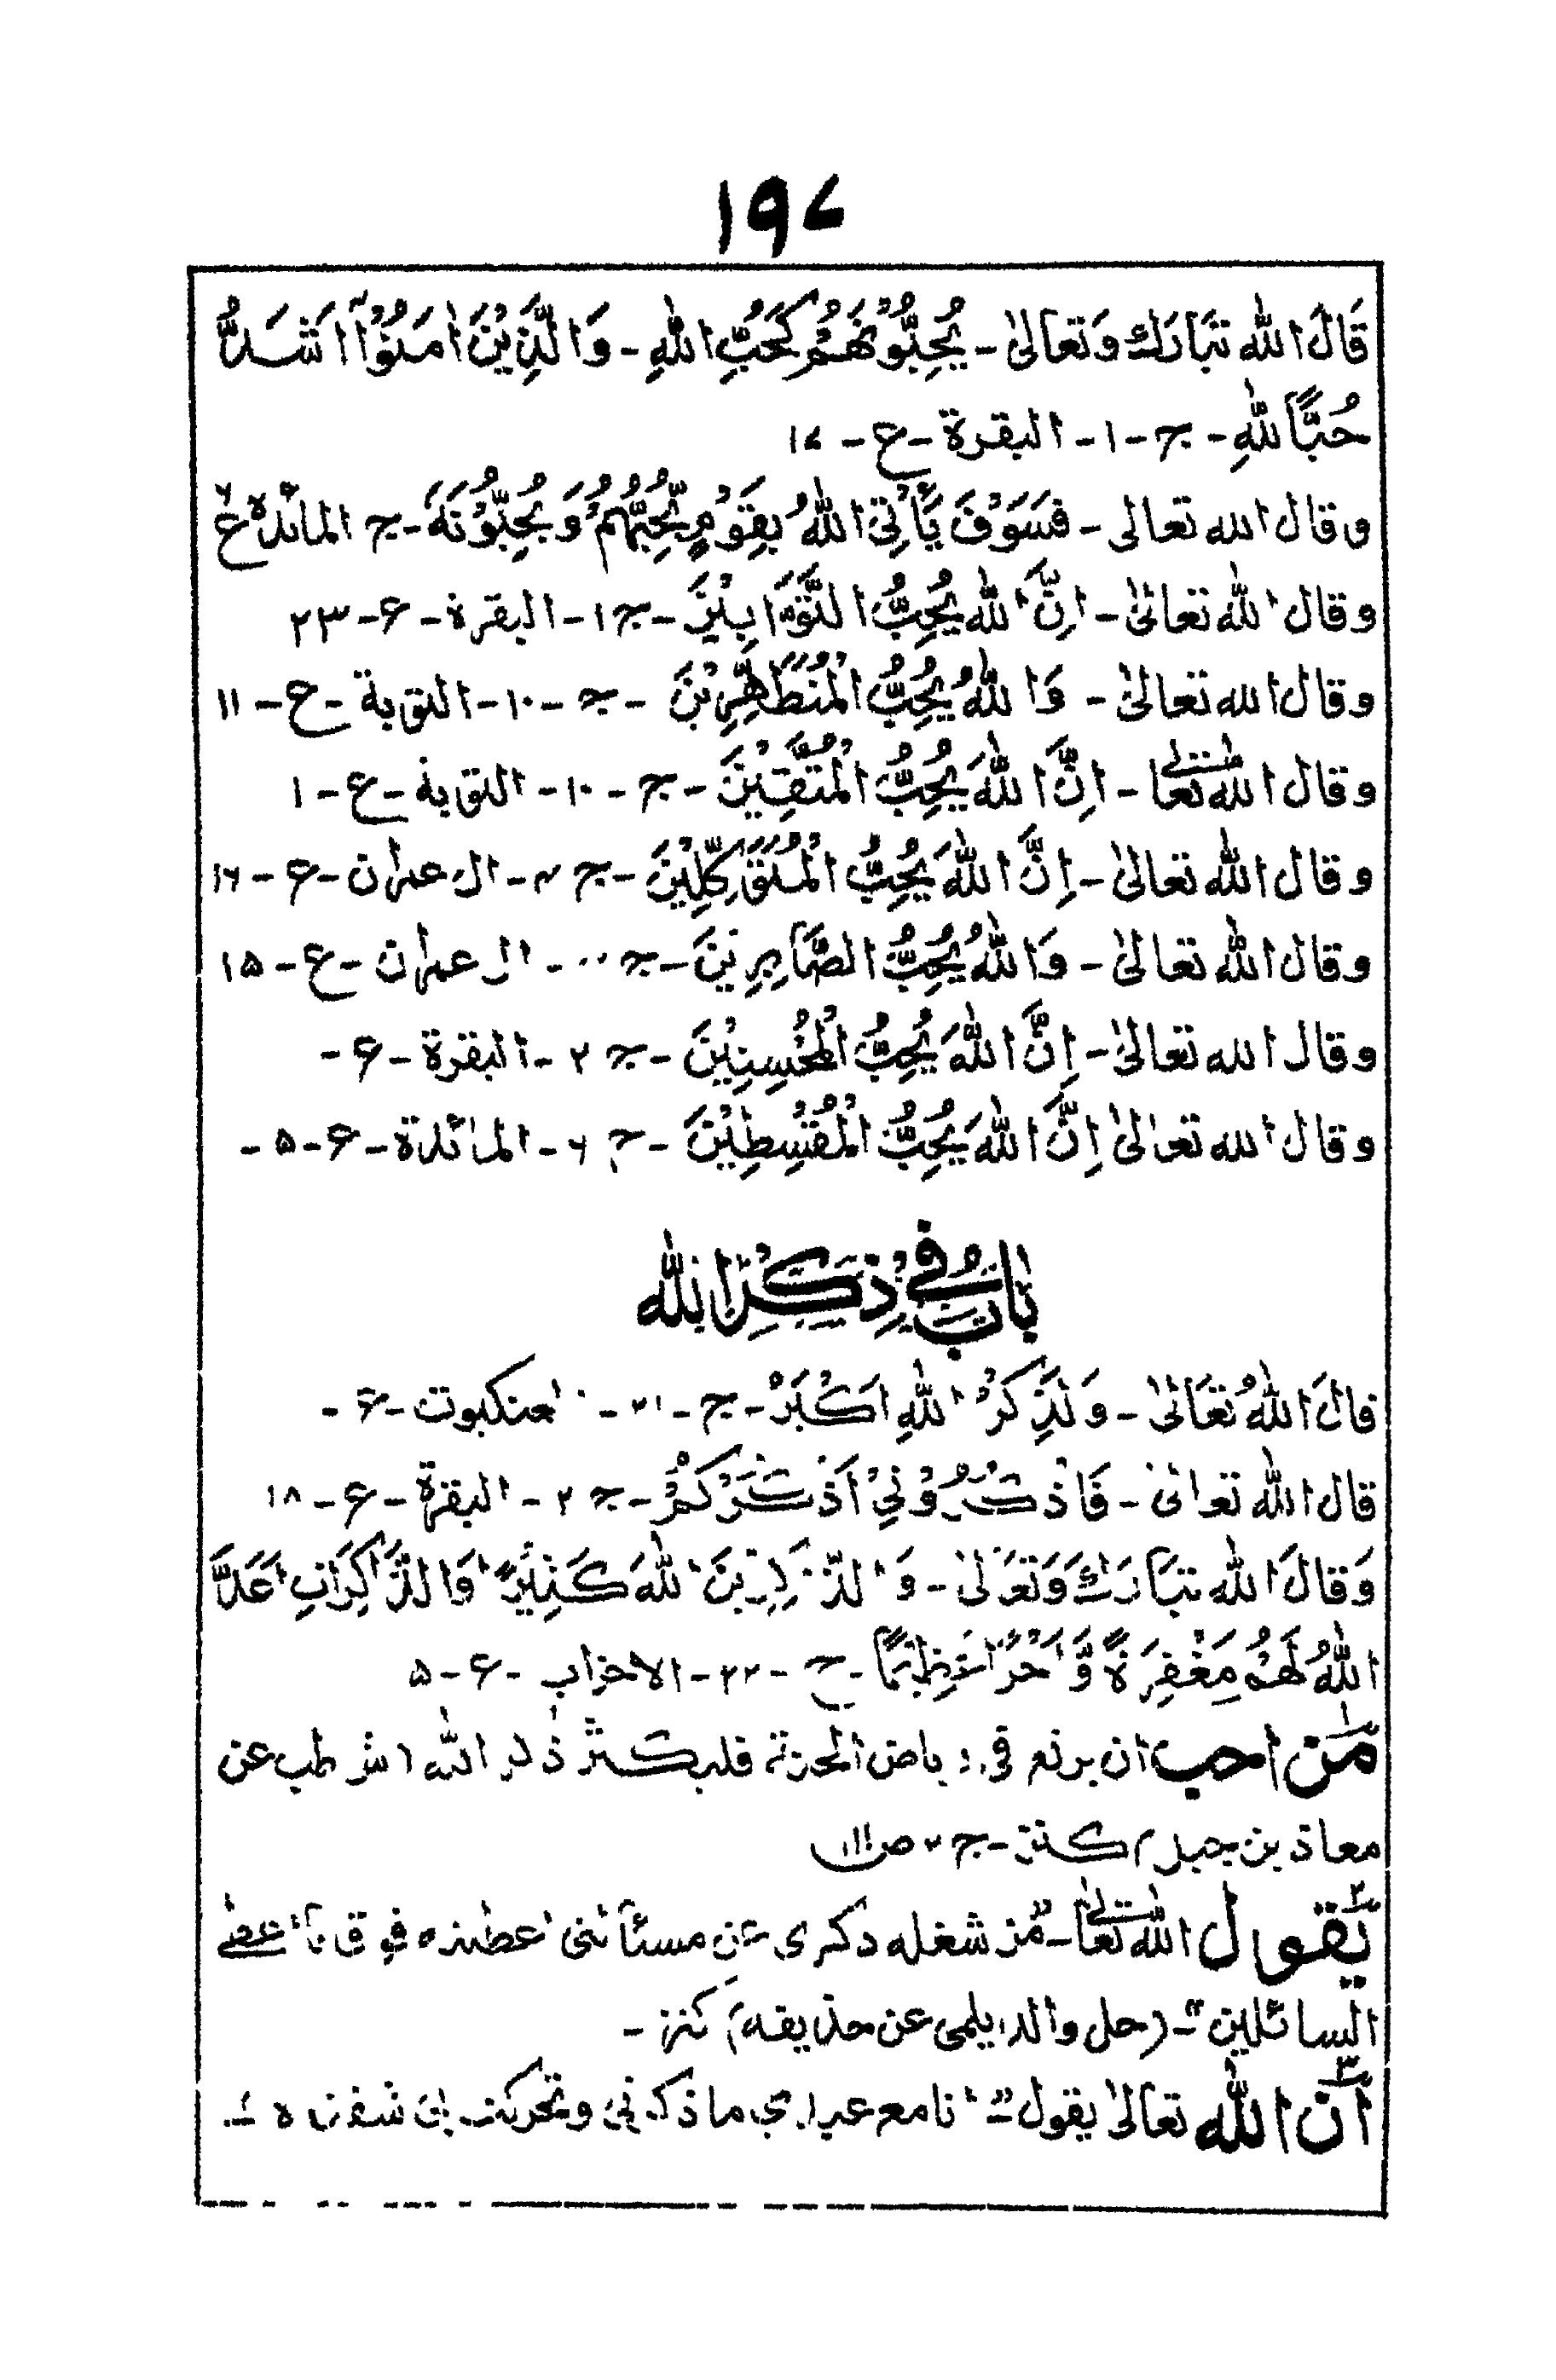 ۱۹۷
قَالَ اللّٰہ تَبَارَكَ وَتَعَالیٰ - یُحِبُّوْنَهُمْ كَحُبِّ اللّٰهِ - وَالَّذِیْنَ اٰمَنُوْۤا اَشَدُّ
حُبًّا لِّلّٰهِ - ج - ۱ - البقرة - ع - ۱۷
و قال اللہ تعالی - فَسَوْفَ یَأْتِی اللّٰهُ بِقَوْمٍ یُّحِبُّهُمْ وَیُحِبُّوْنَهٗ - ج المائدہ ع
وقال اللّٰہ تعالیٰ - اِنَّ اللّٰهَ یُحِبُّ التَّوَّابِیْنَ - ج ۱ - البقرة - ع - ۲۳
وقال اللہ تعالیٰ - وَاللّٰهُ یُحِبُّ الْمُتَطَهِّرِیْنَ - ج - ۱۰ - التوبة - ع - ۱۱
وقال اللّٰہ تعالیٰ - اِنَّ اللّٰهَ یُحِبُّ الْمُتَّقِیْنَ - ج - ۱۰ - التوبة - ع - ۱
وقال اللّٰہ تعالیٰ - اِنَّ اللّٰهَ یُحِبُّ الْمُتَوَكِّلِیْنَ - ج ۴ - ال عمران - ع - ۱۶
وقال اللّٰہ تعالیٰ - وَاللّٰهُ یُحِبُّ الصَّابِرِیْنَ - ج - ال عمران - ع - ۱۵
وقال اللہ تعالیٰ - اِنَّ اللّٰهَ یُحِبُّ الْمُحْسِنِیْنَ - ج ۲ - البقرة - ع -
وقال اللہ تعالیٰ اِنَّ اللّٰهَ یُحِبُّ الْمُقْسِطِیْنَ - ج ۶ - المائدة - ع - ۵ -
بَابٌ فِیْ ذِكْرِ اللّٰه
قالَ اللّٰهُ تَعَالیٰ - وَلَذِكْرُ اللّٰهِ اَكْبَرُ - ج - ۲۱ - العنكبوت - ع -
قال اللّٰہ تعالیٰ - فَاذْكُرُوْنِیْ اَذْكُرْكُمْ - ج ۲ - البقرة - ع - ۱۸
وَقَالَ اللّٰہ تَبَارَكَ وَتَعَالیٰ - وَالذّٰكِرِیْنَ اللّٰهَ كَثِیْرًا وَّالذَّاكِرَاتِ اَعَدَّ
اللّٰهُ لَهُمْ مَغْفِرَةً وَّاَجْرًا عَظِیْمًا - ج - ۲۲ - الاحزاب - ع - ۵
۱ مَن احب ان یرتع فی ریاض الجنة فلیكثر ذكر اللّٰه (ش طب عن
معاذ بن جبل) كنز - ج ۲ ص۱۱۱
۲ یَقول اللّٰه تعالیٰ - "من شغله ذكری عن مسئالتی اعطیته فوق ما اعطی
السائلین" - (حل والدیلمی عن حذیفه) كنز -
۳ اَنّ اللّٰه تعالیٰ یقول - "انا مع عبدی ما ذكرنی وتحركت بی شفتاه" -